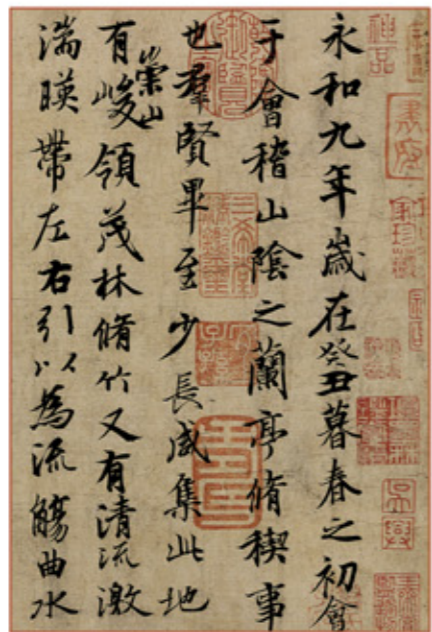 永和九年歲在癸丑暮春之初會
于會稽山陰之蘭亭脩稧事
也羣賢畢至少長咸集此地
有崇山峻領茂林脩竹又有清流激
湍暎帶左右引以為流觴曲水
神品